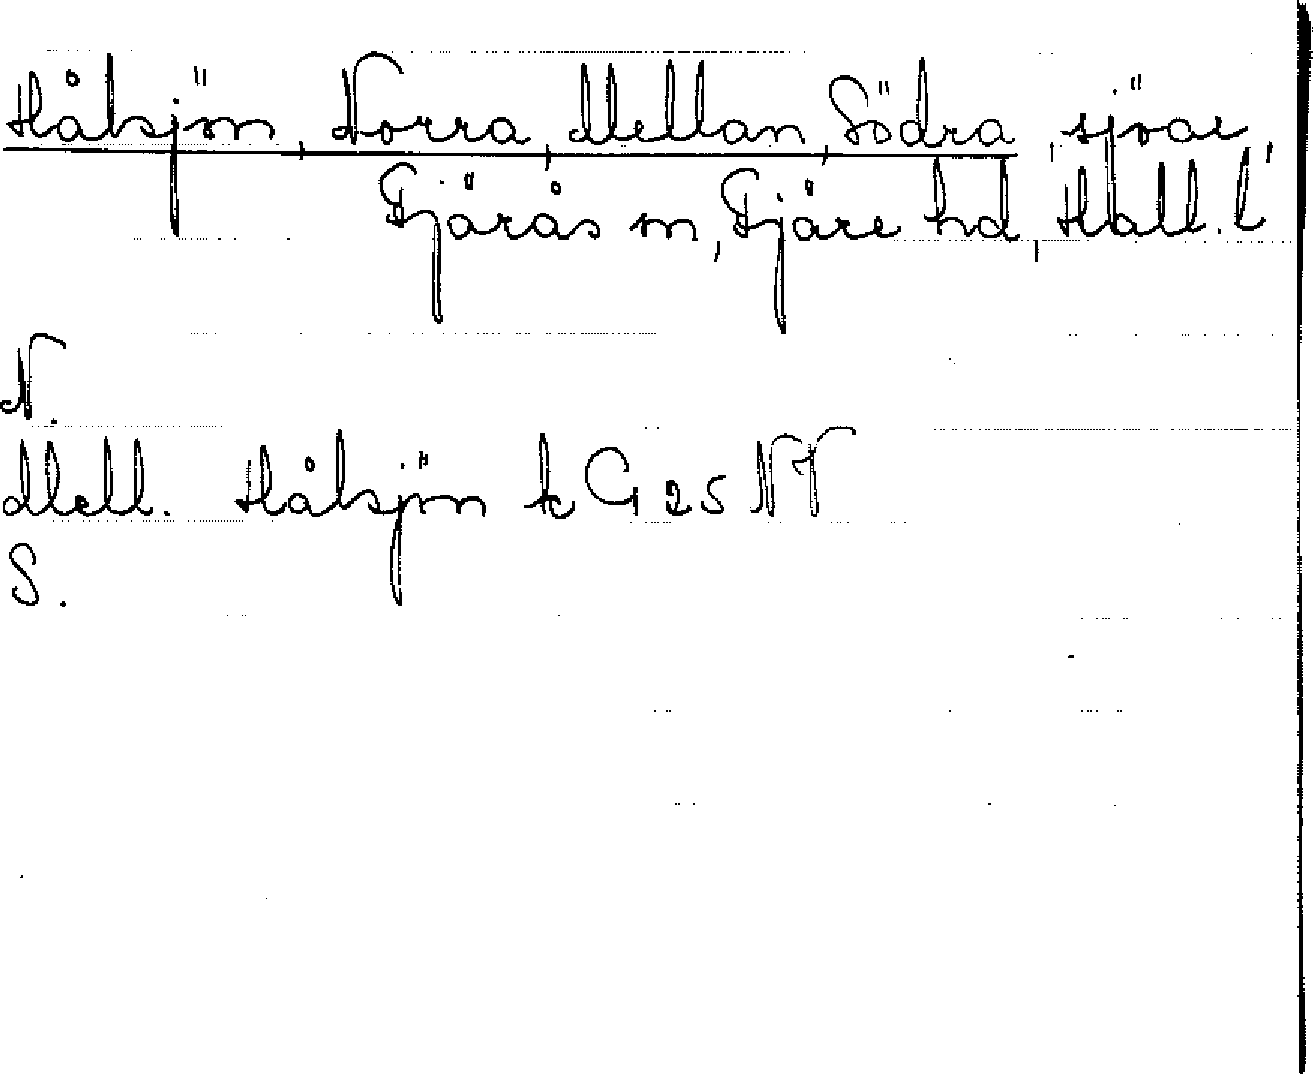 Hålsjön, Norra, Mellan, Södra, sjöar,
Fjärås sn, Fjäre hd, Hall. l
N.
Mell. Hålsjön k G 25 NV
S.